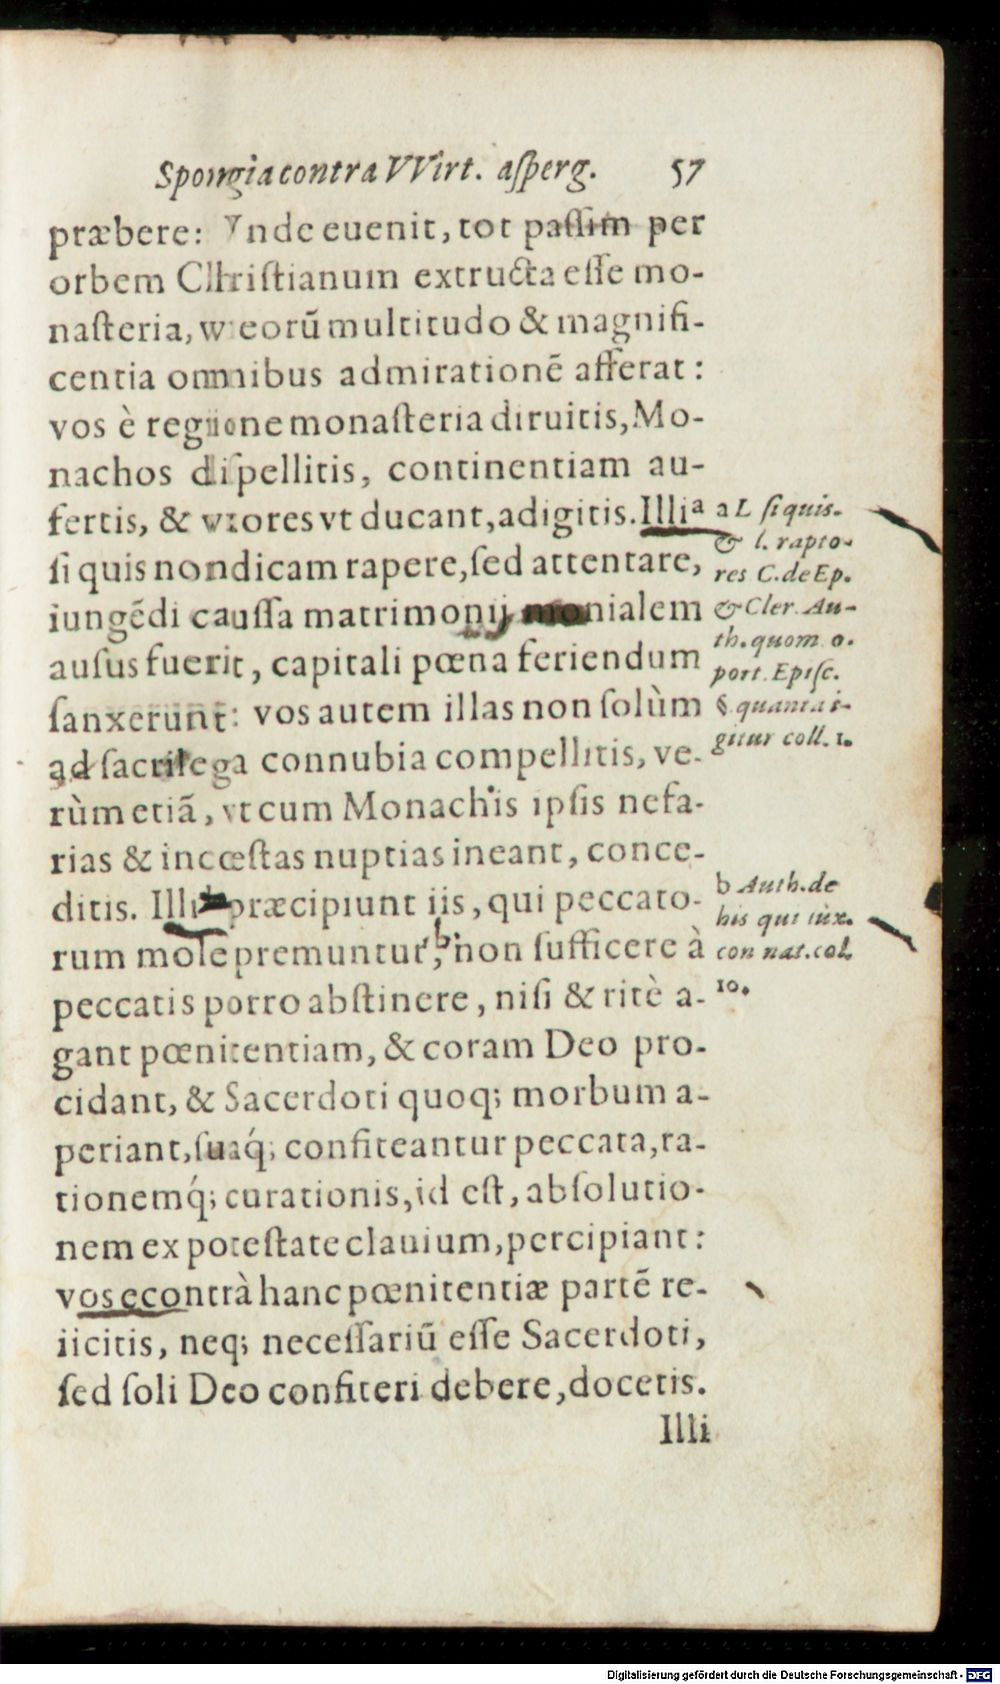 Spongia contra VVirt. asperg. 57
præbere: Vnde euenit, tot passim per
orbem Christianum extructa esse mo-
nasteria, vt eorũ multitudo & magnifi-
centia omnibus admirationẽ afferat:
vos è regione monasteria diruitis, Mo-
nachos dispellitis, continentiam au-
fertis, & vxores vt ducant, adigitis. Illi a
si quis non dicam rapere, sed attentare,
iungẽdi caussa matrimonij monialem
ausus fuerit, capitali pœna feriendum
sanxerunt: vos autem illas non solùm
ad sacrilega connubia compellitis, ve-
rùm etiã, vt cum Monachis ipsis nefa-
rias & incœstas nuptias ineant, conce-
ditis. Illi b præcipiunt iis, qui peccato-
rum mole premuntur, b non sufficere à
peccatis porro abstinere, nisi & ritè a-
gant pœnitentiam, & coram Deo pro-
cidant, & Sacerdoti quoq; morbum a-
periant, suaq́; confiteantur peccata, ra-
tionemq́; curationis, id est, absolutio-
nem ex potestate clauium, percipiant:
vos econtrà hanc pœnitentiæ partẽ re-
iicitis, neq; necessariũ esse Sacerdoti,
sed soli Deo confiteri debere, docetis.
Illi
a L. si quis.
& l. rapto-
res C. de Ep.
& Cler. Au-
th. quom o.
port. Episc.
§ quanta i-
gitur coll. 1.
b Auth. de
his qui lux.
con nat. col.
10.
Digitalisierung gefördert durch die Deutsche Forschungsgemeinschaft - DFG